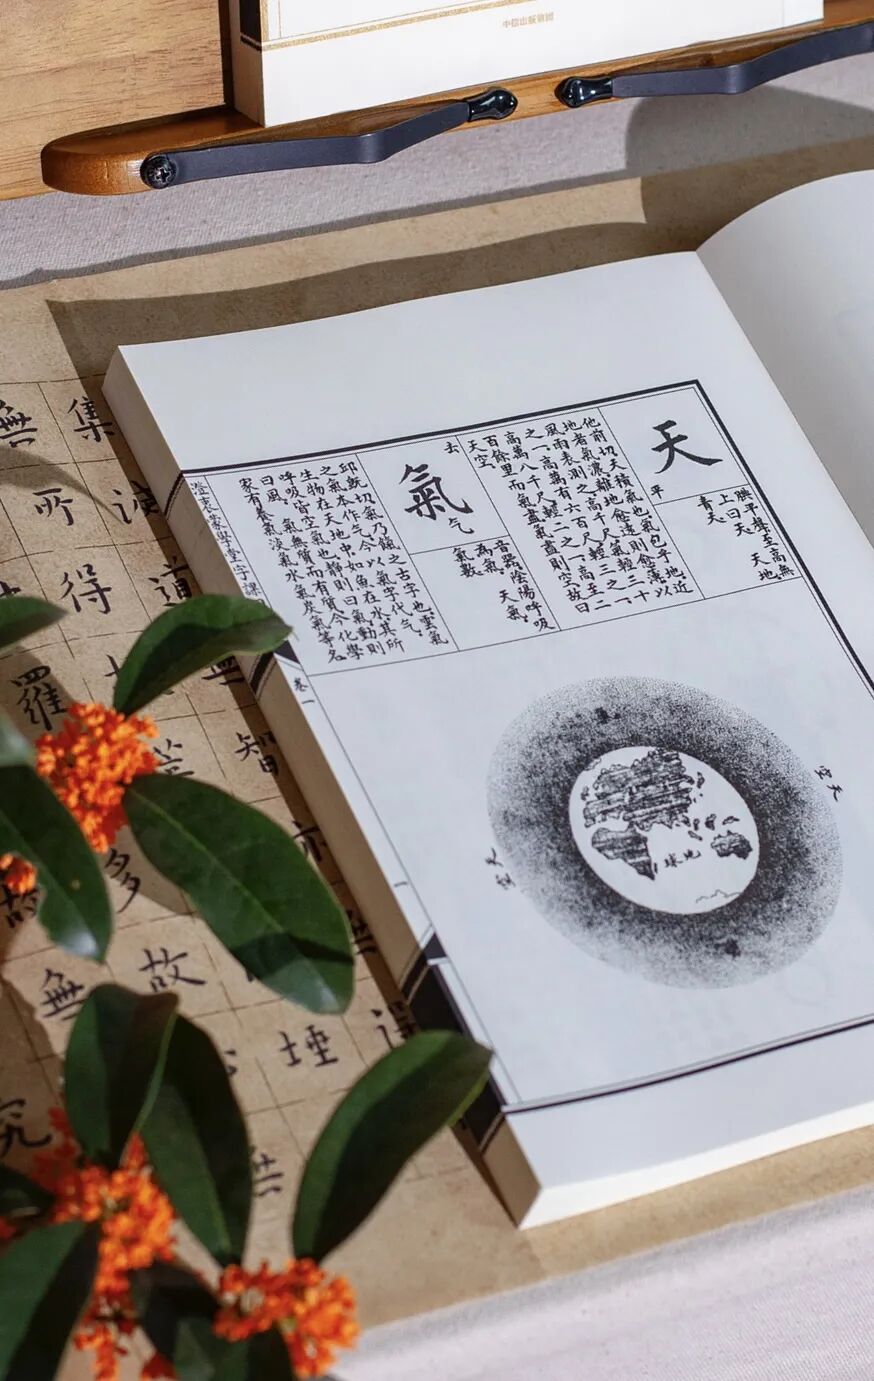 中信出版集團
天
平
腆平聲至高無
上曰天 天地
青天
他前切天積氣也氣包乎地近
地者氣濃離地愈遠則愈薄以
風雨表測之高千尺輕三十
之一高萬有六百尺輕三之一
高萬八千尺輕二之一高至二
百餘里而氣盡氣盡則空故曰
天空
氣
去
气
音器陰陽呼吸
為氣 天氣
氣數
邱既切氣乃餼之古字也雲氣
之氣本作气今以氣字代气
生物在天地中如魚在水其所
呼吸皆空氣也靜則曰氣動則
曰風 氣無質而有質今化學
家有養氣淡氣水氣炭氣等名
澄衷蒙學堂字課
卷一
一
天空
地球
天空
集
道
智
亦
得
故
無
所
羅
多
無
究